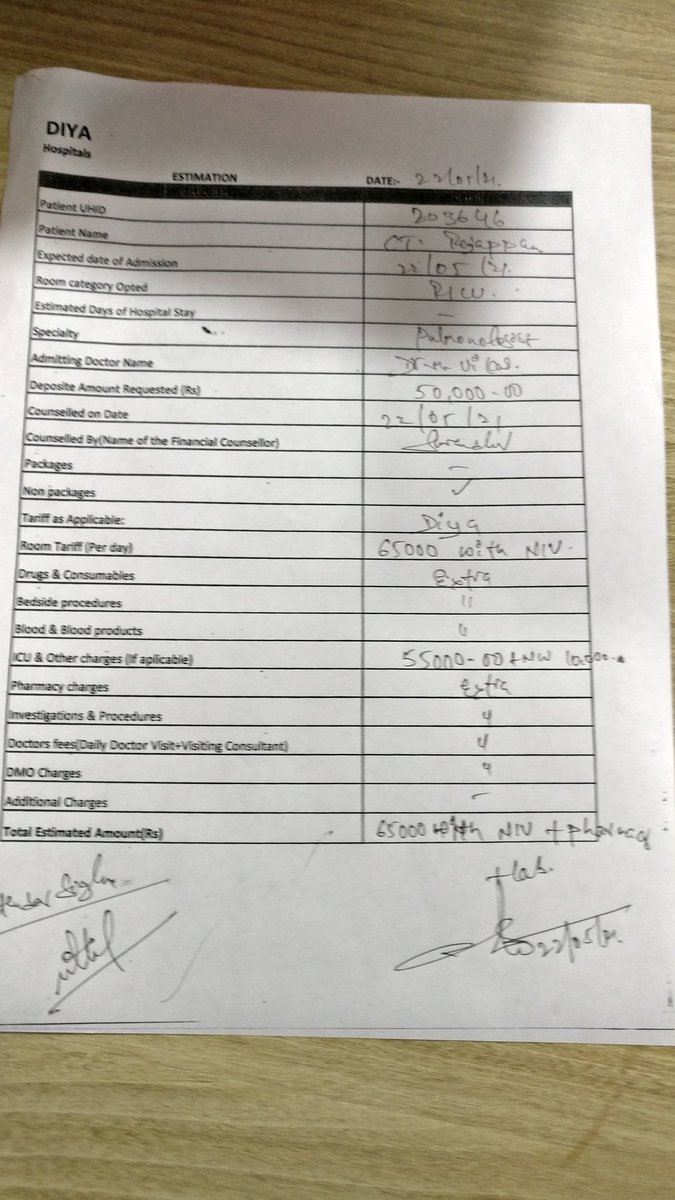 DIYA
Hospitals
ESTIMATION DATE:- 22/05/21.
Patient UHID 203646
Patient Name CT. Rajappan
Expected date of Admission 22/05/21.
Room category Opted
Estimated Days of Hospital Stay –
Specialty
Admitting Doctor Name
Deposite Amount Requested (Rs) 50,000-00
Counselled on Date 22/05/21
Counselled By(Name of the Financial Counsellor)
Packages –
Non packages ✓
Tariff as Applicable: Diya
Room Tariff (Per day) 65000 with NIV.
Drugs & Consumables Extra
Bedside procedures "
Blood & Blood products "
ICU & Other charges (If aplicable) 55000-00 + 10,000
Pharmacy charges Extra
Investigations & Procedures "
Doctors fees(Daily Doctor Visit+Visiting Consultant) "
DMO Charges "
Additional Charges –
Total Estimated Amount(Rs) 65000 with NIV + pharmacy
+ lab.
22/05/21.